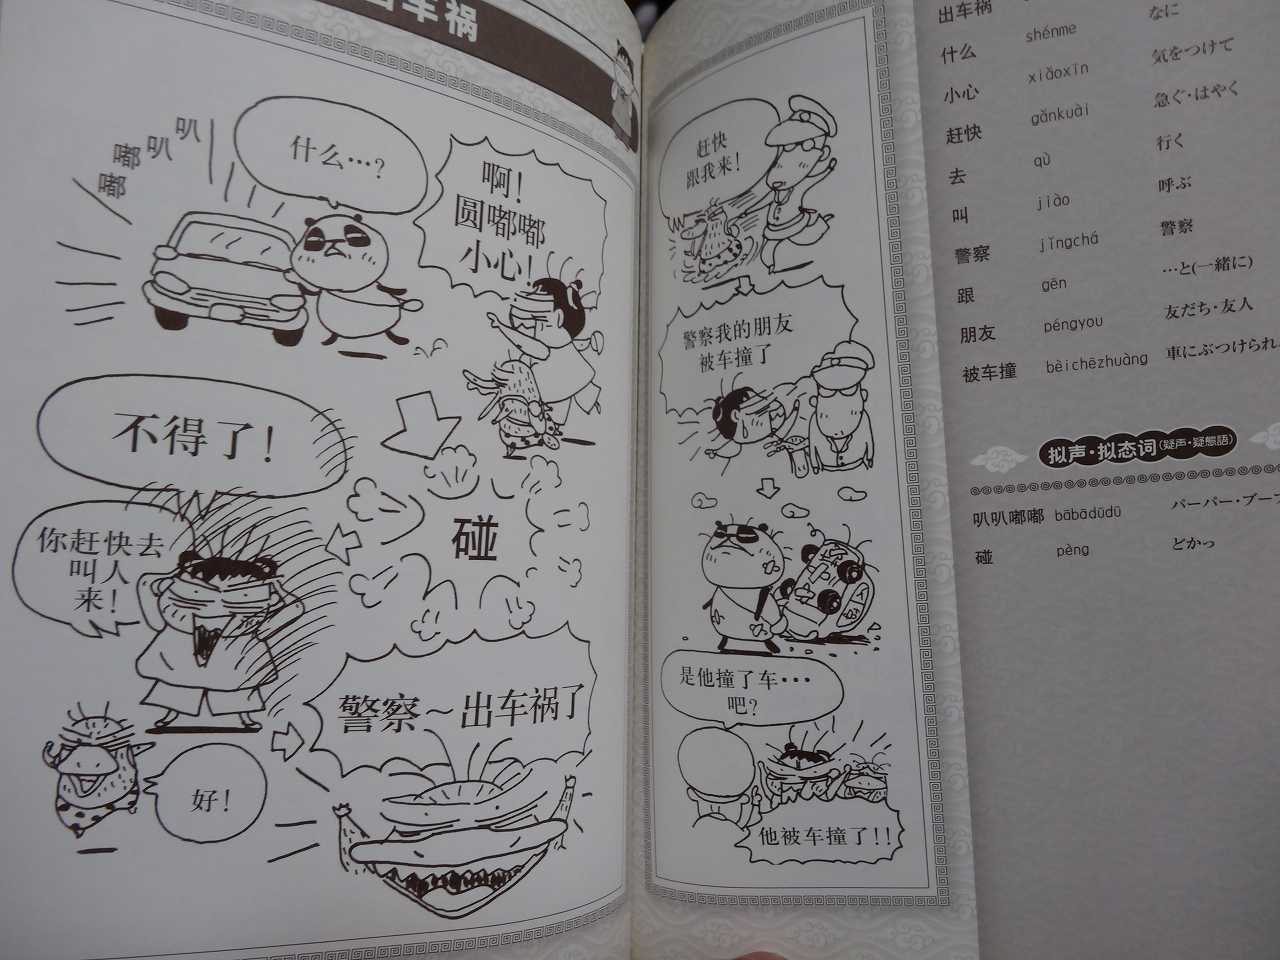 出车祸
叭
叭
嘟
嘟
什么…?
啊!
圆嘟嘟
小心!
碰
不得了!
你赶快去
叫人
来!
好!
警察～出车祸了
赶快
跟我来!
警察我的朋友
被车撞了
是他撞了车…
吧?
他被车撞了!!
出车祸
什么 shénme なに
小心 xiǎoxīn 気をつけて
赶快 gǎnkuài 急ぐ・はやく
去 qù 行く
叫 jiào 呼ぶ
警察 jǐngchá 警察
跟 gēn …と(一緒に)
朋友 péngyou 友だち・友人
被车撞 bèichēzhuàng 車にぶつけられ
拟声・拟态词(疑声・疑態語)
叭叭嘟嘟 bābādūdū パーパー・ブー
碰 pèng どかっ